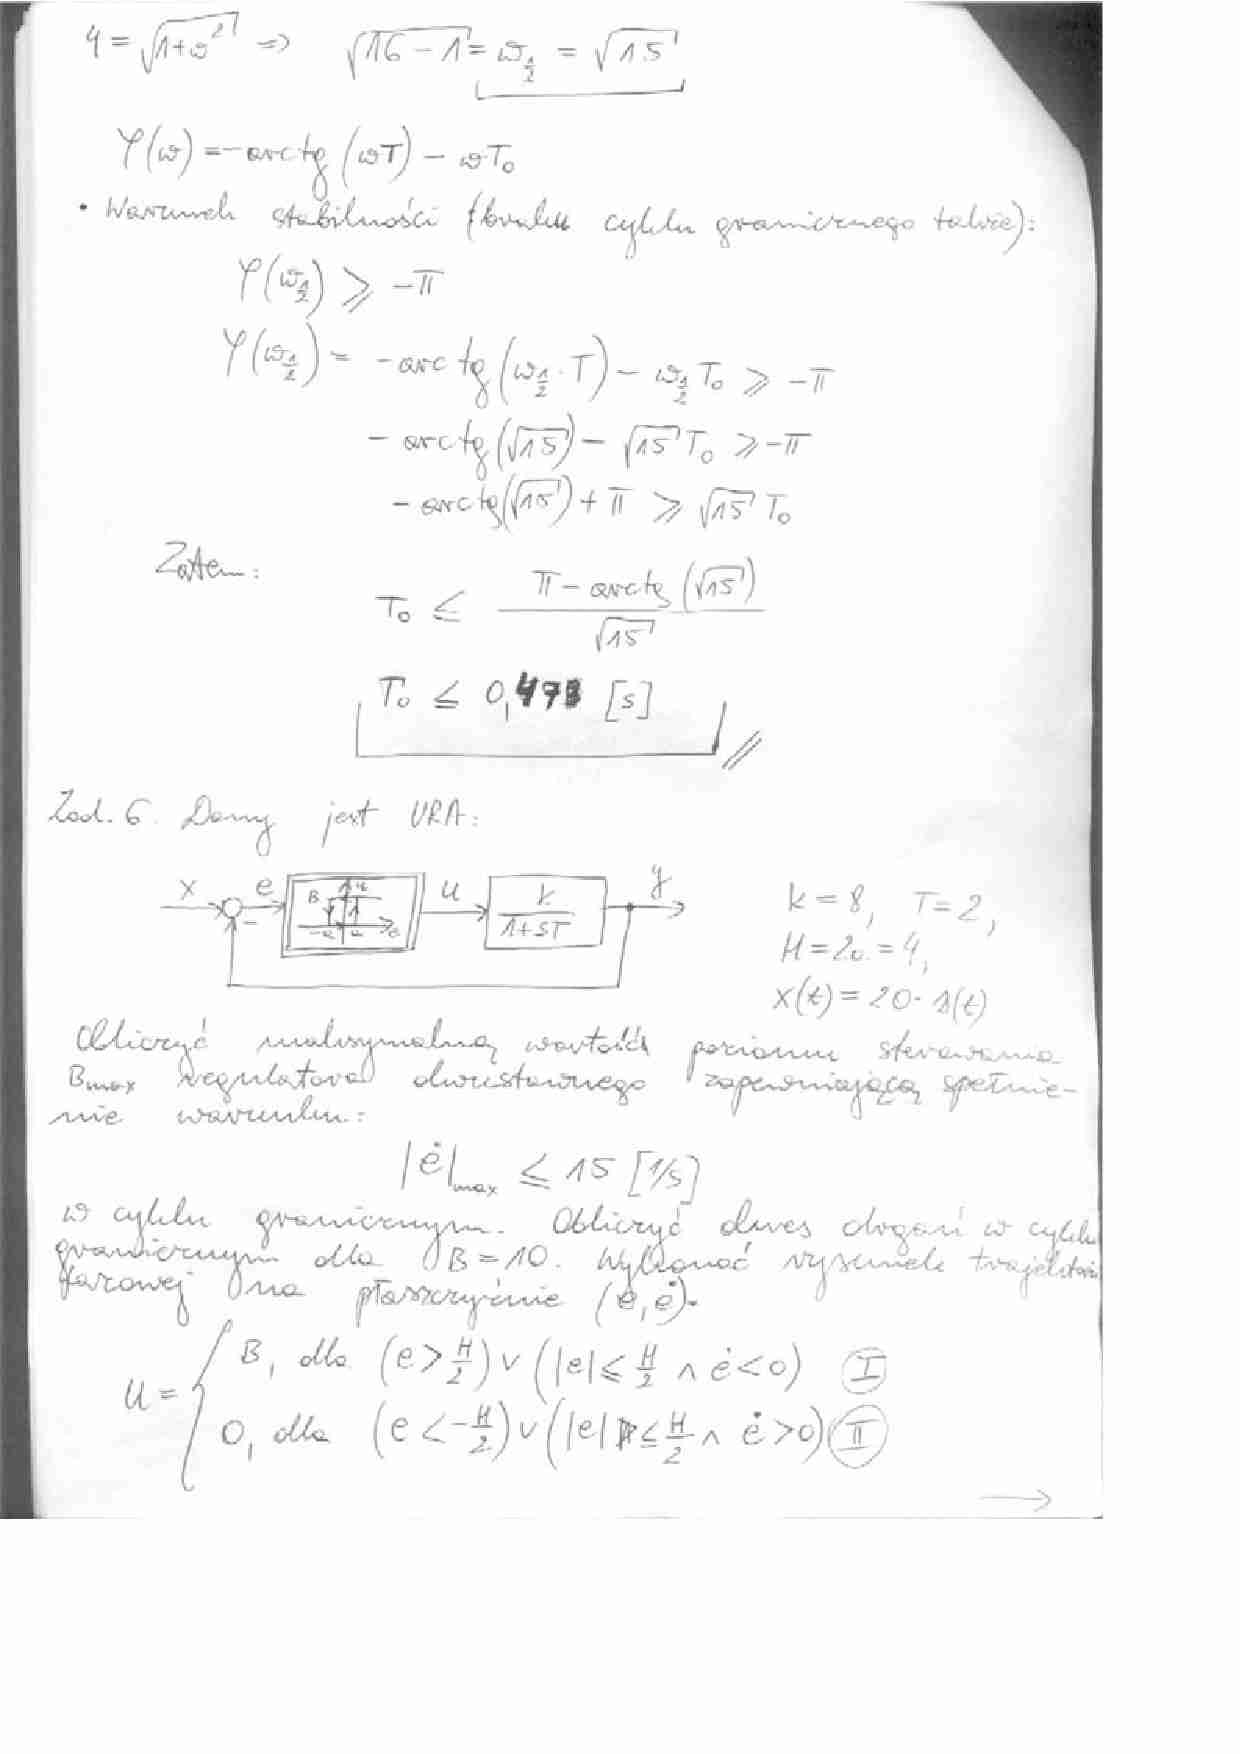 4 = √(1+ω²) => √(16-1) = ω_{1/2} = √15
φ(ω) = -arctg(ωT) - ωT₀
• Warunek stabilności (braku cyklu granicznego także):
φ(ω_{1/2}) ⩾ -π
φ(ω_{1/2}) = -arctg(ω_{1/2}·T) - ω_{1/2}T₀ ⩾ -π
- arctg(√15) - √15 T₀ ⩾ -π
- arctg(√15) + π ⩾ √15 T₀
Zatem:
T₀ ≤ (π - arctg(√15)) / √15
T₀ ≤ 0,473 [s]
Zad. 6. Dany jest URA:
x e - B u -a a e u k/(1+sT) y
k = 8, T = 2,
H = 2a = 4,
x(t) = 20·1(t)
Obliczyć maksymalną wartość poziomu sterowania
Bmax regulatora dwustawnego zapewniającą spełnie-
nie warunku:
|ė|max ≤ 15 [1/s]
w cyklu granicznym. Obliczyć okres drgań w cyklu
granicznym dla B = 10. Wykonać rysunek trajektorii
fazowej na płaszczyźnie (e, ė).
u = { B, dla (e > H/2) ∨ (|e| ≤ H/2 ∧ ė < 0) I
0, dla (e < -H/2) ∨ (|e| ≤ H/2 ∧ ė > 0) II
→